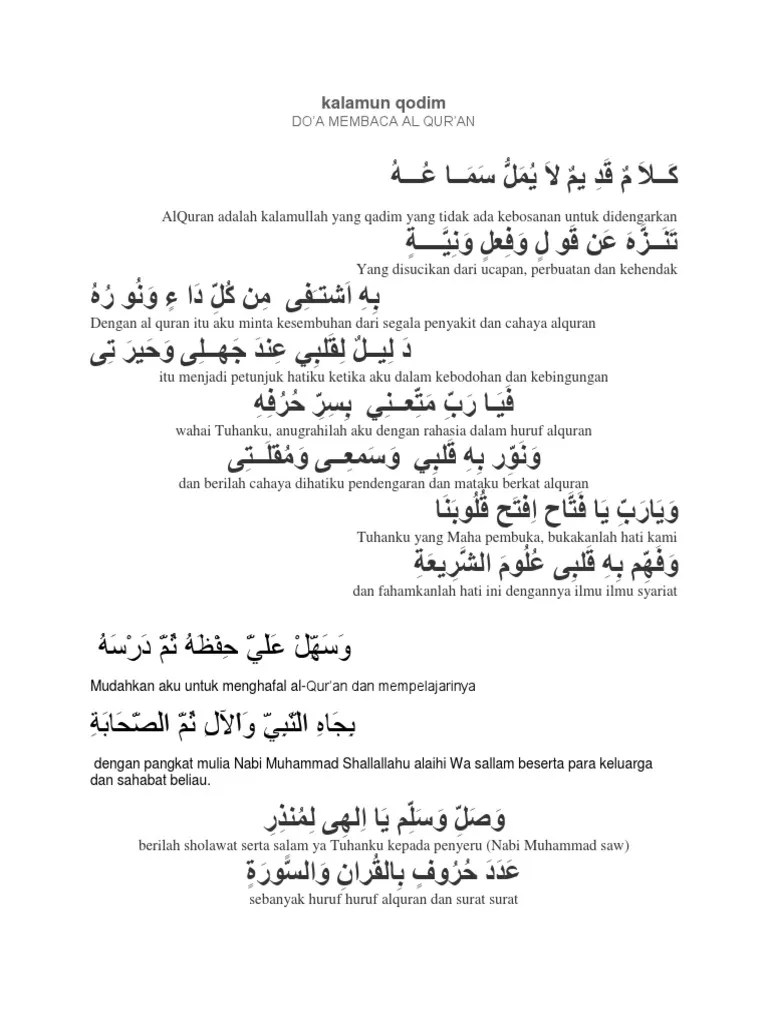 kalamun qodim
DO'A MEMBACA AL QUR'AN
كَــلاَ مٌ قَدِ يمٌ لاَ يُمَلُّ سَمَــا عُـــهُ
AlQuran adalah kalamullah yang qadim yang tidak ada kebosanan untuk didengarkan
تَنَــزَّهَ عَن قَو لٍ وَفِعلٍ وَنِيَّـــــةٍ
Yang disucikan dari ucapan, perbuatan dan kehendak
بِهِ اَشتـَـفِى مِن كُلِّ دَا ءٍ وَنُو رُهُ
Dengan al quran itu aku minta kesembuhan dari segala penyakit dan cahaya alquran
دَ لِيــلٌ لِقَلبِي عِندَ جَهــلِى وَحَيرَ تِى
itu menjadi petunjuk hatiku ketika aku dalam kebodohan dan kebingungan
فَيَــا رَبِّ مَتِّعــنِي بِسِرِّ حُرُفِهِ
wahai Tuhanku, anugrahilah aku dengan rahasia dalam huruf alquran
وَنَوِّر بِهِ قَلبِي وَسَمعِــى وَمُقلَــتِى
dan berilah cahaya dihatiku pendengaran dan mataku berkat alquran
وَيَارَبِّ يَا فَتَّاح اِفتَح قُلُوبَنَا
Tuhanku yang Maha pembuka, bukakanlah hati kami
وَفَهِّم بِهِ قَلبِى عُلُومَ الشَّرِيعَةِ
dan fahamkanlah hati ini dengannya ilmu ilmu syariat
وَسَهِّلْ عَلَيَّ حِفْظَهُ ثُمَّ دَرْسَهُ
Mudahkan aku untuk menghafal al-Qur'an dan mempelajarinya
بِجَاهِ النَّبِيِّ وَالآلِ ثُمَّ الصَّحَابَةِ
dengan pangkat mulia Nabi Muhammad Shallallahu alaihi Wa sallam beserta para keluarga
dan sahabat beliau.
وَصَلِّ وَسَلِّم يَا اِلهِى لِمُنذِرِ
berilah sholawat serta salam ya Tuhanku kepada penyeru (Nabi Muhammad saw)
عَدَدَ حُرُوفٍ بِالقُرانِ وَالسُّورَةٍ
sebanyak huruf huruf alquran dan surat surat